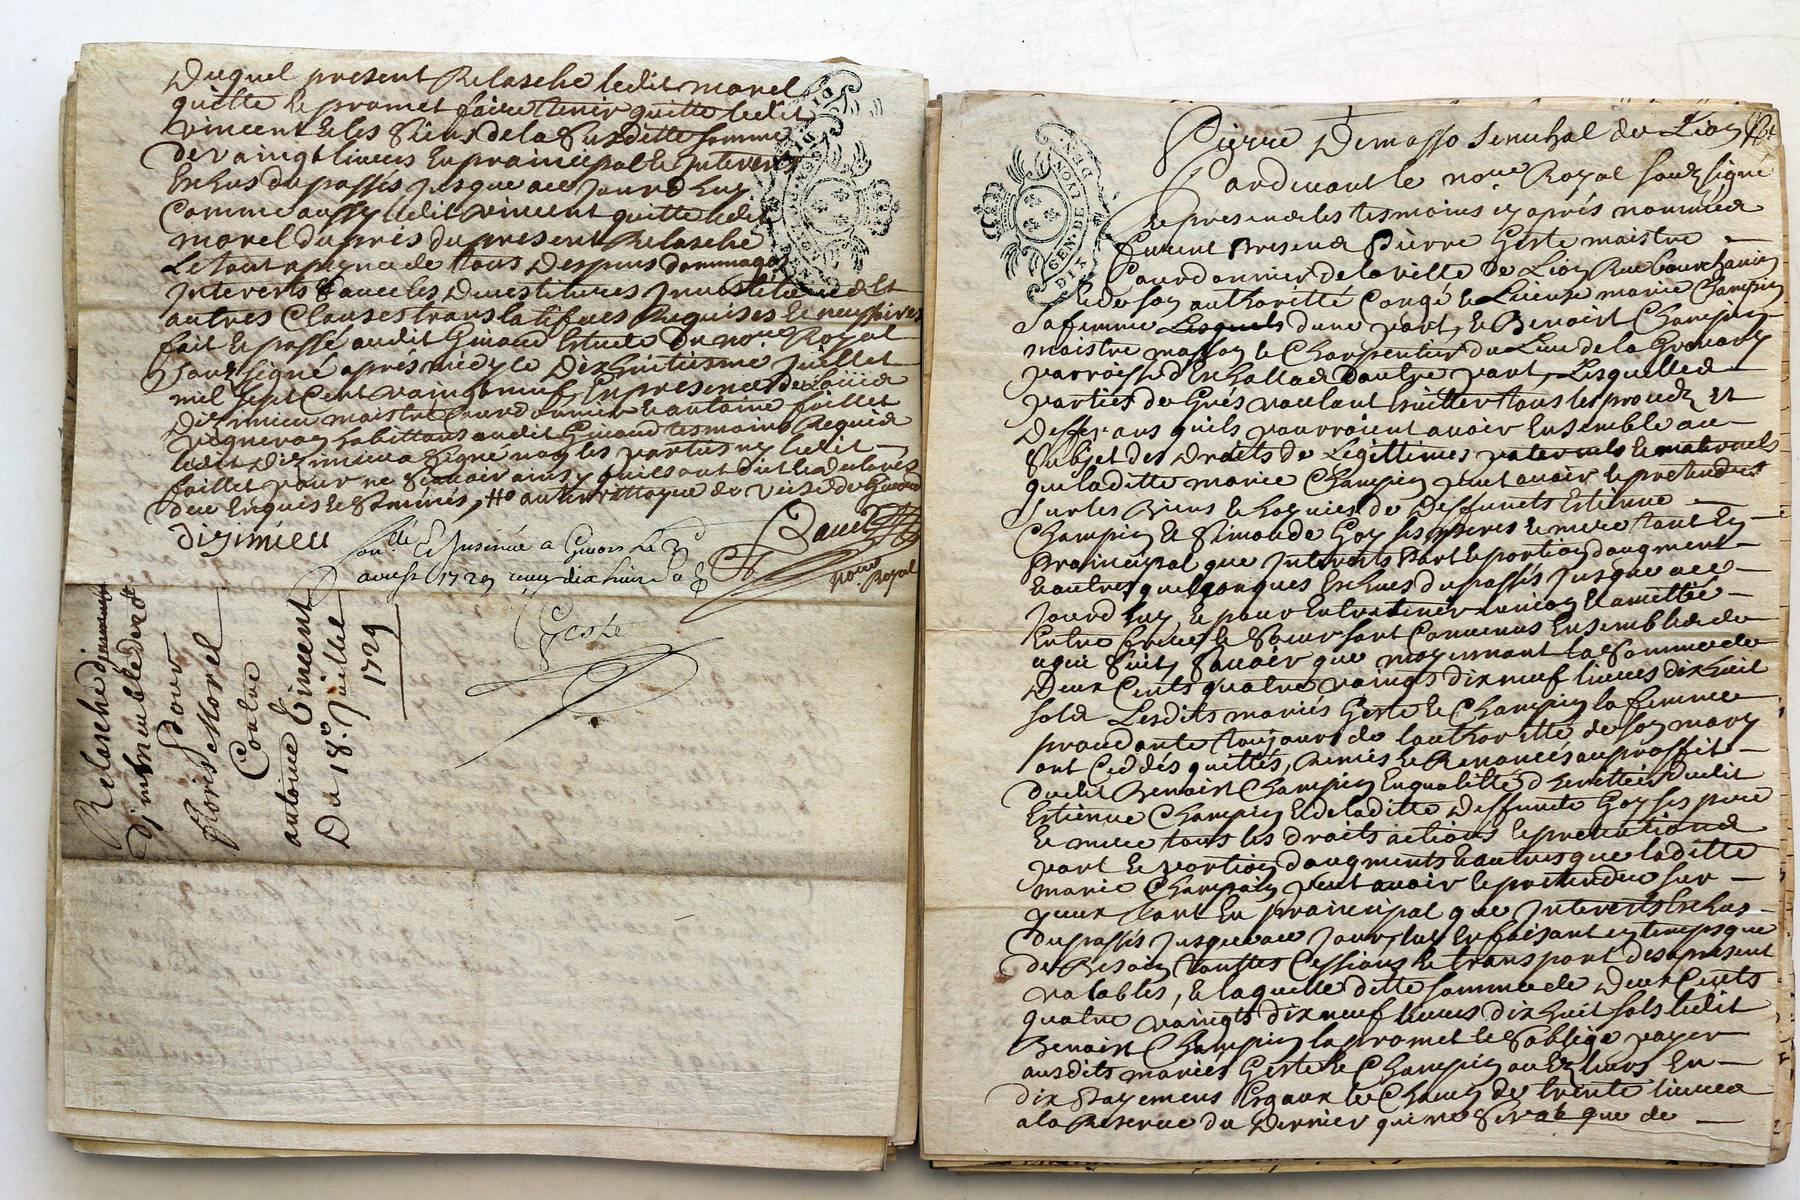 Duquel present Relasche ledit morel
quitte & promet faire tenir quitte ledit
vincent & les siens de la susditte somme
de vaingt livres en praincipal & Interests
Eschus du passés jusque a ce jourd'huy
Comme aussy ledit vincent quitte ledit
morel du pris du present Relasche
Le tout a peyne de tous Despens dommages
Interests & avec les Devestitures Investitures &
autres Clauses translatifves Requises & necessaires
fait & passé audit Givord Estude du no.re Royal
soubsigné après midy le Dixhuitiesme Juillet
mil sept Cent vaingt neuf, En presence de
Dizimieu maistre Cordonnier & antoine faillet
vigneron habittans audit Givord tesmoins Requis
ledit Dizimieu a signe non les parties ny ledit
faillet pour ne scavoir ainsy quils ont dit & declarés
due Enquis & sommés,
Dizimieu
Con.llé & Insinué a Givors Le
1729 receu dix huit
no.re Royal
Geste
Relasche d'
Immeuble de
pour
floris Morel
Contre
antoine Vincent
Du 18.e Juillet
1729
GEN. DE LYON
DIX DEN
Pierre Demasso Senechal de Lion
Pardevant le no.re Royal soubsigné
& presents les tesmoins cy après nommés
furent Presens Pierre Geste maistre
Courdonnier de la ville de Lion Rue bourchanin
& de son authoritté Congé & Licence marie Champin
sa femme Lesquels d'une part, & Benoist Champin
maistre masson & Charpentier du Lieu de la
parroisse d'Eschallas d'autre part, Lesquelles
parties de Grés voulant Esvitter tous les proces Et
Differans quils pourroient avoir Ensemble au
subjet des Droits de Legittimes paternels & maternels
que laditte marie Champin peut avoir & pretendre
sur les Biens & hoyries de Deffunets Estienne
Champin & Simonde Goy ses peres & mere tant En
Praincipal que Interests Part & portion daugment
& autres quelconques Eschus du passés jusque a ce
jourd huy, & pour Entretenir lunion & amittié
Entre frere & soeur sont Convenus Ensemble de
ce que suit, scavoir que moyennant la somme de
Deux Cents quatre vaingts dix neuf livres dix huit
sols Lesdits mariés Geste & Champin la femme
procedante toujours de lauthoritté de son mary
ont Ceddés quittés, Remis & Renoncés au proffit
dudit Benoist Champin En qualitté d'heritier dudit
Estienne Champin & de laditte Deffuncte Goy ses pere
& mere tous les droits actions & pretentions
part & portion d'augments & autres que laditte
marie Champin peut avoir & pretendre sur
yceux tant En praincipal que Interests Eschus
du passés jusque a ce jourd'huy En faisant en temps que
de Besoin touttes Cessions & transport des a present
valables, & laquelle ditte somme de Deux Cents
quatre vaingts dix neuf livres dix huit sols ledit
Benoist Champin la promet & s'oblige payer
ausdits mariés Geste & Champin ou Ez leurs En
dix Payemens Esgaux & Chacun de trente livres
a la Reserve du Dernier qui ne sera que de